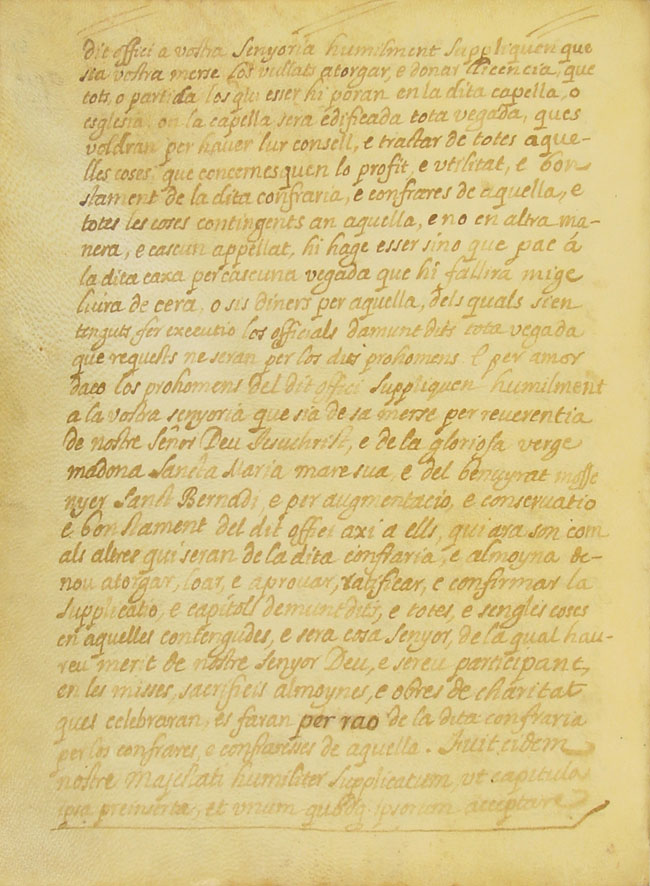 dit offici a vostra Senyoria humilment Suppliquen que
sia vostra merse los vullats atorgar, e donar licencia, que
tots, o partida los qui esser hi poran en la dita capella, o
esglesia, on la capella sera edificada tota vegada, ques
voldran per haver lur consell, e tractar de totes aque-
lles coses, que concernesquen lo profit, e utilitat, e bon
stament de la dita confraria, e confrares de aquella, e
totes les coses contingents an aquella, e no en altra ma-
nera, e cascun appellat, hi hage esser sino que pac á
la dita caxa per cascuna vegada que hi fallira mige
liura de cera, o sis diners per aquella, dels quals sien
tenguts fer executio los officials damunt dits tota vegada
que requests ne seran per los dits prohomens. E per amor
daço los prohomens del dit offici Suppliquen humilment
a la vostra senyoria que sia de sa merse per reverentia
de nostre Señor Deu Jesuchrist, e de la gloriosa verge
madona Sancta Maria mare sua, e del benuyrat mosse
nyer Sanct Bernadi, e per augmentacio, e conservatio
e bon stament del dit offici axi a ells, qui ara son com
als altres qui seran de la dita confraria, e almoyna de-
nou atorgar, loar, e aprovar, ratificar, e confirmar la
Supplicatio, e capitols demunt dits, e totes, e sengles coses
en aquelles contengudes, e sera cosa Senyor, de la qual hau-
reu merit de nostre Senyor Deu, e sereu participant,
en les misses, sacrificis almoynes, e obres de charitat
ques celebraran, es faran per rao de la dita confraria
per los confrares, e confraresses de aquella. Fuit eidem
nostre Majestati humiliter Supplicatum, ut capitula
ipsa preinserta, et unum quodq ipsorum acceptare